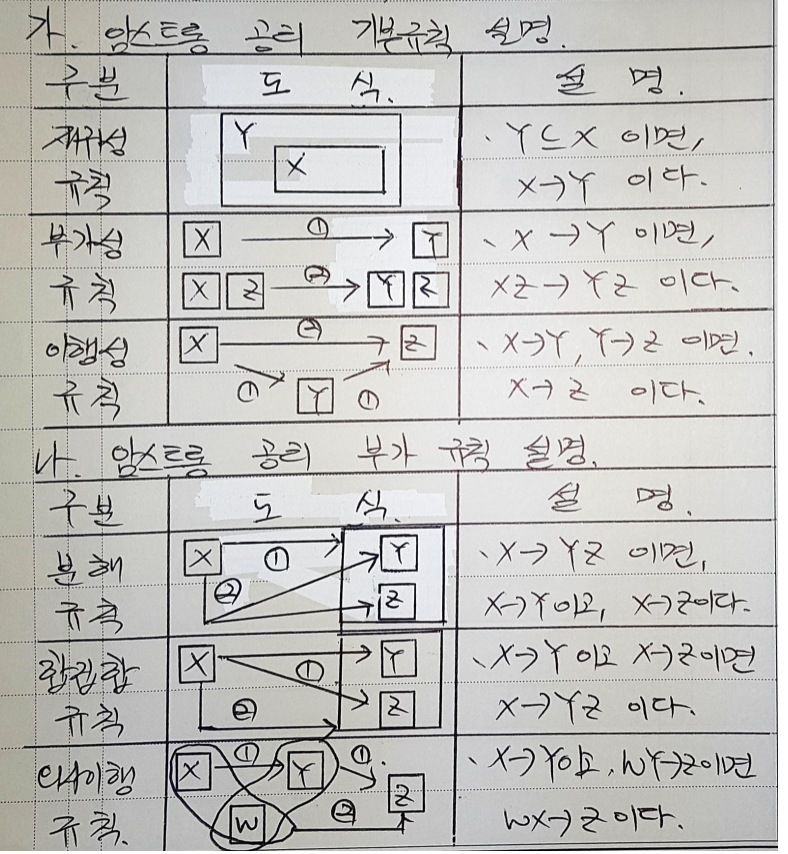 가. 암스트롱 공리 기본규칙 설명.
구분 도 식. 설 명.
재귀성 규칙
Y
X
、Y⊆X 이면,
X→Y 이다.
부가성 규칙
X ① Y
X Z ② Y Z
、X→Y 이면,
XZ→YZ 이다.
이행성 규칙
X ② Z
① Y ①
、X→Y, Y→Z 이면.
X→Z 이다.
나. 암스트롱 공리 부가 규칙 설명.
구분 도 식. 설 명.
분해 규칙
X ① Y
② Z
、X→YZ 이면,
X→Y이고, X→Z이다.
합집합 규칙
X ① Y
② Z
、X→Y 이고 X→Z이면
X→YZ 이다.
의사이행 규칙.
X ① Y ①.
W ② Z
、X→Y이고, WY→Z이면
WX→Z이다.